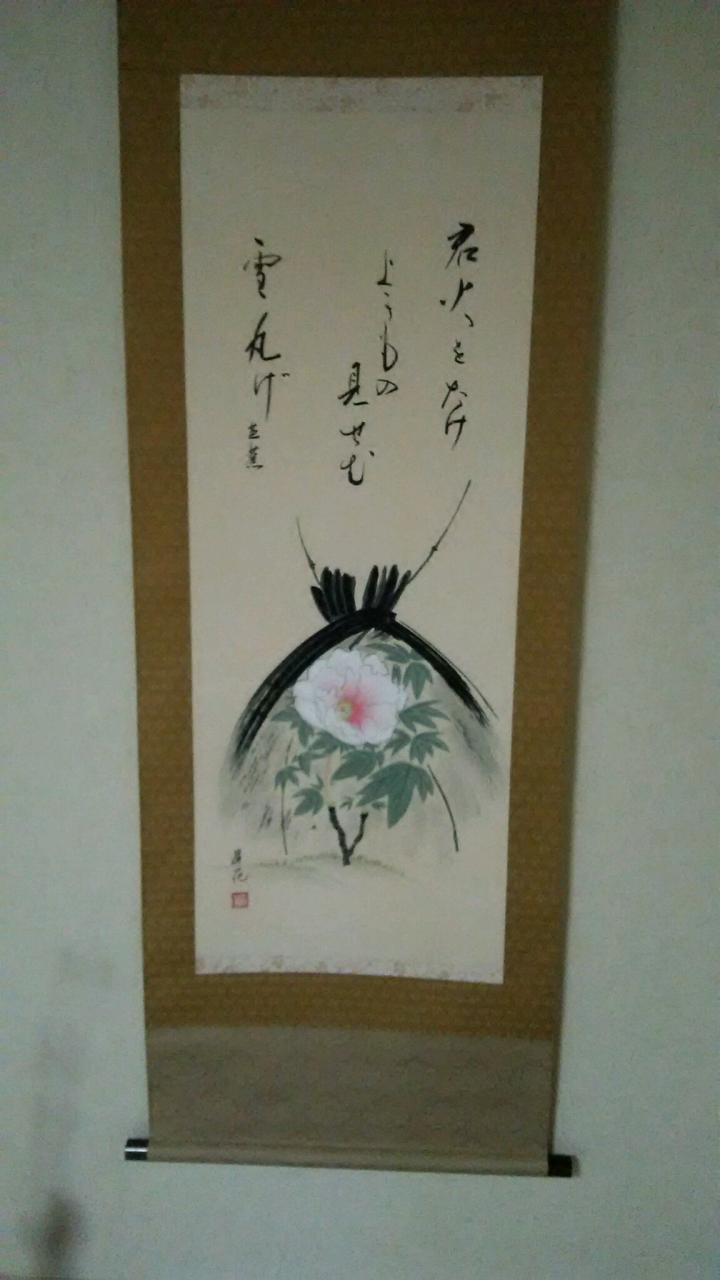 君火をたけ
よきもの
見せむ
雪丸げ
芭蕉